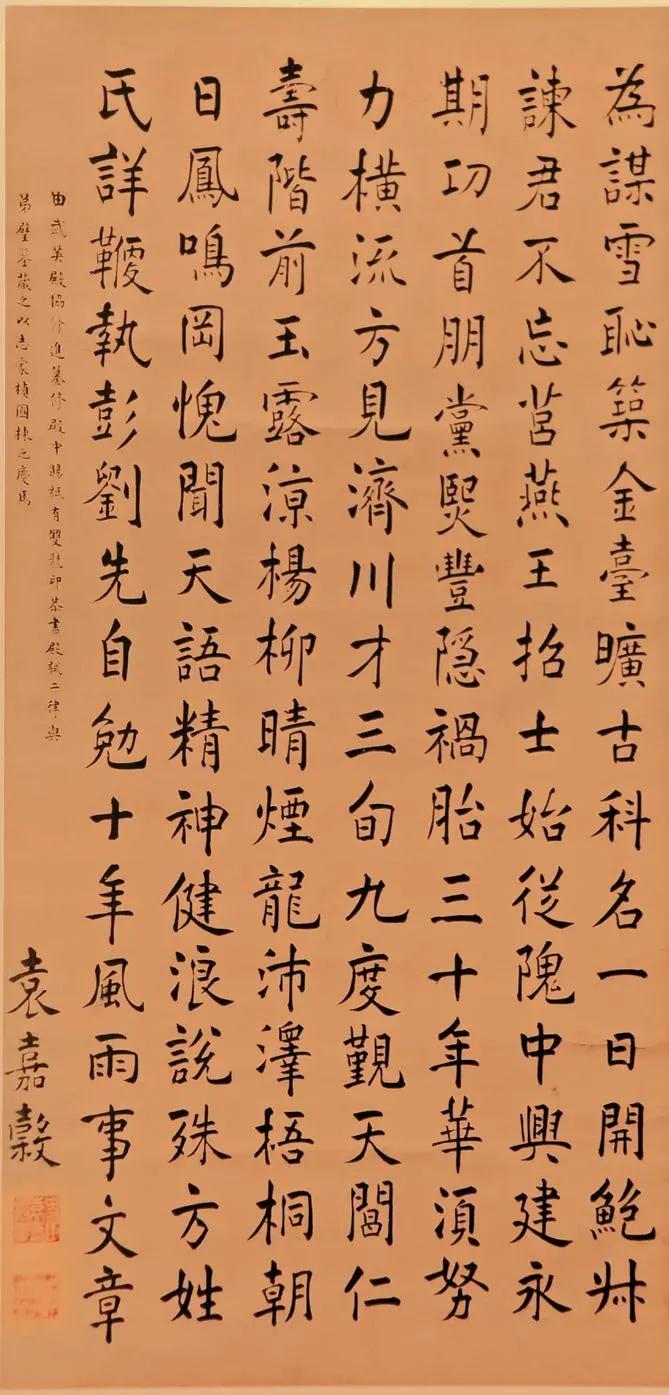 為謀雪恥築金臺曠古科名一日開鮑叔
諫君不忘莒燕王招士始從隗中興建永
期功首朋黨熙豐隱禍胎三十年華須努
力橫流方見濟川才三旬九度覲天閶仁
壽階前玉露涼楊柳晴煙龍沛澤梧桐朝
日鳳鳴岡愧聞天語精神健浪說殊方姓
氏詳鞭執彭劉先自勉十年風雨事文章
由武英殿協修進纂修殿中賜紙有雙龍印恭書殿試二律與
弟璧荃藏之以志家楨國棟之慶焉
袁嘉穀